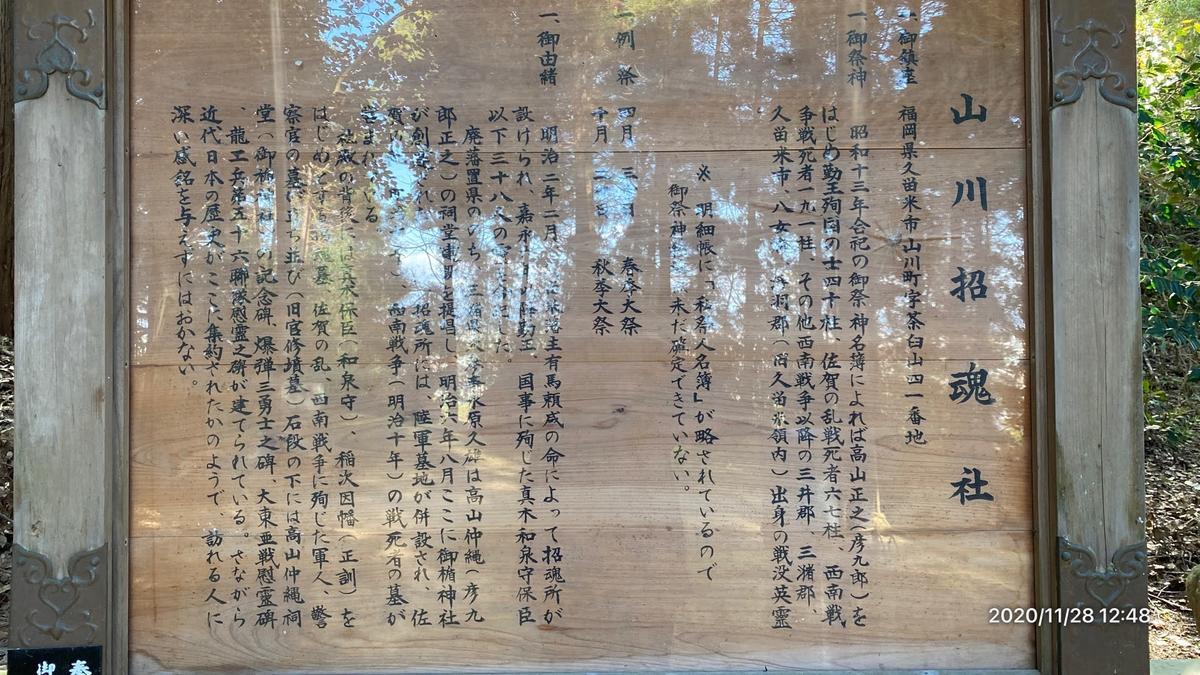 山川招魂社
一、御鎮座 福岡県久留米市山川町字茶臼山四一番地
一、御祭神 昭和十三年合祀の御祭神名簿によれば高山正之(彦九郎)を
はじめ勤王殉国の士四十柱、佐賀の乱戦死者六七柱、西南戦
争戦死者一九一柱、その他西南戦争以降の三井郡、三潴郡、
久留米市、八女郡(旧久留米領内)出身の戦没英霊
※ 明細帳に「祭名人名簿」が略されているので
御祭神 未だ確定できていない。
一、例祭 四月 三日 春季大祭
十月 二 秋季大祭
一、御由緒 明治二年二月、久留米藩主有馬頼咸の命によって招魂所が
設けられ、嘉永 勤王、国事に殉じた真木和泉守保臣
以下三十八人の した。
廃藩置県ののち、三潴県 水原久雄は高山仲縄(彦九
郎正之)の祠堂建 を提唱し、明治六年八月ここに御楯神社
が創 れ、 招魂所には、陸軍墓地が併設され、佐
賀の 西南戦争(明治十年)の戦死者の墓が
営まれ る
社殿の背後には真木保臣(和泉守)、稲次因幡(正訓)を
はじめ 墓、佐賀の乱、西南戦争に殉じた軍人、警
察官の墓が立ち並び(旧官修墳墓)石段の下には高山仲縄祠
堂(御楯神社)の記念碑、爆弾三勇士之碑、大東亜戦慰霊碑
、龍工兵第五十六聯隊慰霊之碑が建てられている。さながら
近代日本の歴史がここに集約されたかのようで、訪れる人に
深い感銘を与えずにはおかない。
奉
御
2020/11/28 12:48